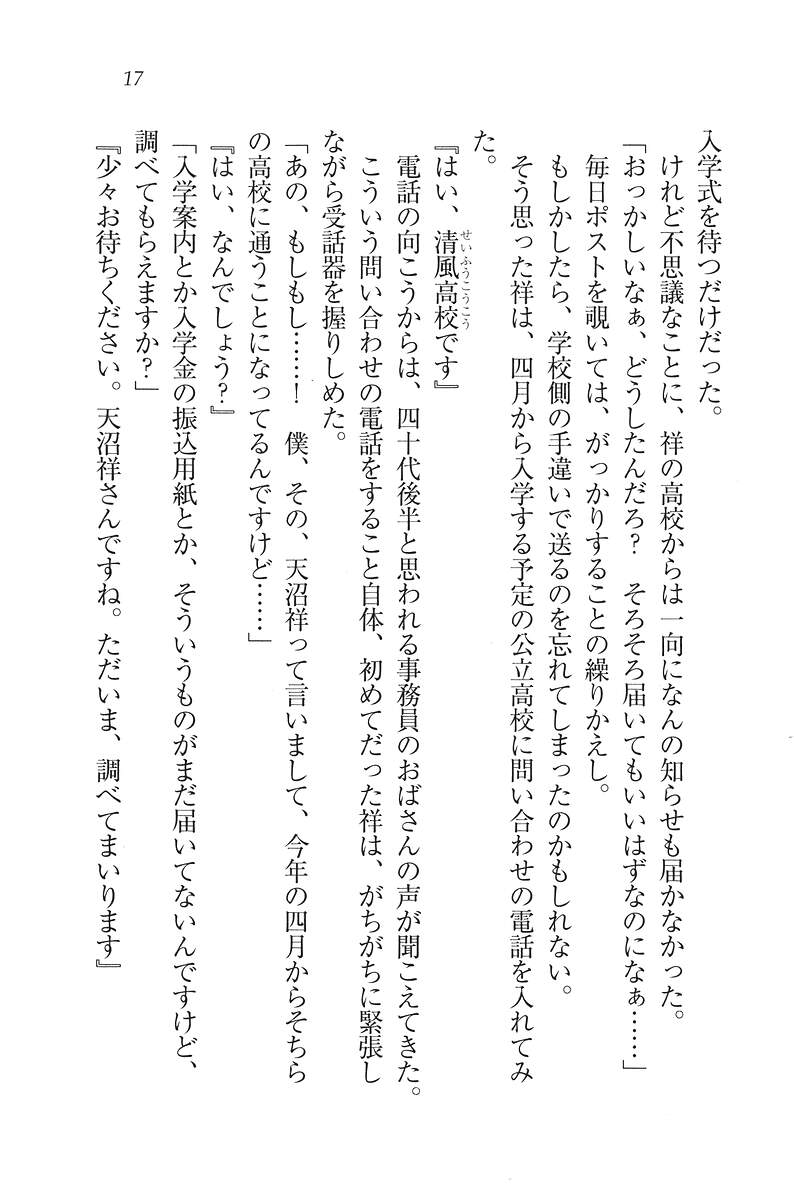 17
入学式を待つだけだった。
　けれど不思議なことに、祥の高校からは一向になんの知らせも届かなかった。
「おっかしいなぁ、どうしたんだろ？　そろそろ届いてもいいはずなのになぁ……」
　毎日ポストを覗いては、がっかりすることの繰りかえし。
　もしかしたら、学校側の手違いで送るのを忘れてしまったのかもしれない。
　そう思った祥は、四月から入学する予定の公立高校に問い合わせの電話を入れてみ
た。
『はい、清風高校です』
せいふうこうこう
　電話の向こうからは、四十代後半と思われる事務員のおばさんの声が聞こえてきた。
　こういう問い合わせの電話をすること自体、初めてだった祥は、がちがちに緊張し
ながら受話器を握りしめた。
「あの、もしもし……！　僕、その、天沼祥って言いまして、今年の四月からそちら
の高校に通うことになってるんですけど……」
『はい、なんでしょう？』
「入学案内とか入学金の振込用紙とか、そういうものがまだ届いてないんですけど、
調べてもらえますか？」
『少々お待ちください。天沼祥さんですね。ただいま、調べてまいります』